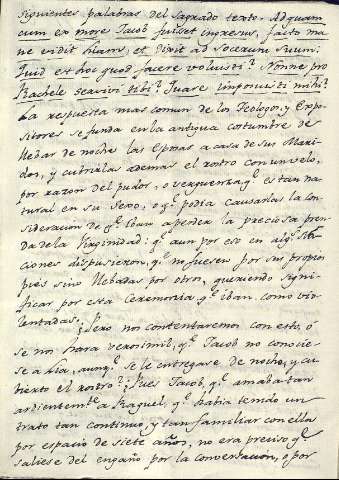 siguientes palabras del Sagrado texto. Ad quam
cum ex more Jacob fuisset ingresus, facto ma
ne vidit liam, et dixit ad Socerum Suum:
Quid est hoc quod facere voluisti? Nonne pro
Rachele servivi tibi? Quare imposuisti mihi?
La respuesta mas comun de los Teologos, y Expo
sitores se funda en la antigua costumbre de
llebar de noche las Esposas a casa de sus Mari
dos, y cubrirlas ademas el rostro con un velo,
por razon del pudor, o verguenza qe. es tan na
tural en su Sexo, o qe. podia causarlas la con
sideracion de qe. iban a perder la preciosa pren
da de la Virginidad: qe. aun por eso en algs. Na
ciones dispusieron, qe. no fuesen por sus propios
pies sino llebadas por otros, queriendo signi
ficar por esta Ceremonia qe. iban como vio
lentadas. ¿Pero nos contentaremos con esto, o
se nos hara verosimil, qe. Jacob no conocie
se a Lia, aunqe. se le entregase de noche, y cu
bierto el rostro? Pues Jacob, qe. amaba tan
ardientemte. a Raquel, qe. habia tenido un
trato tan continuo, y tan familiar con ella
por espacio de siete años, no era preciso qe.
saliese del engaño por la conversacion, o por